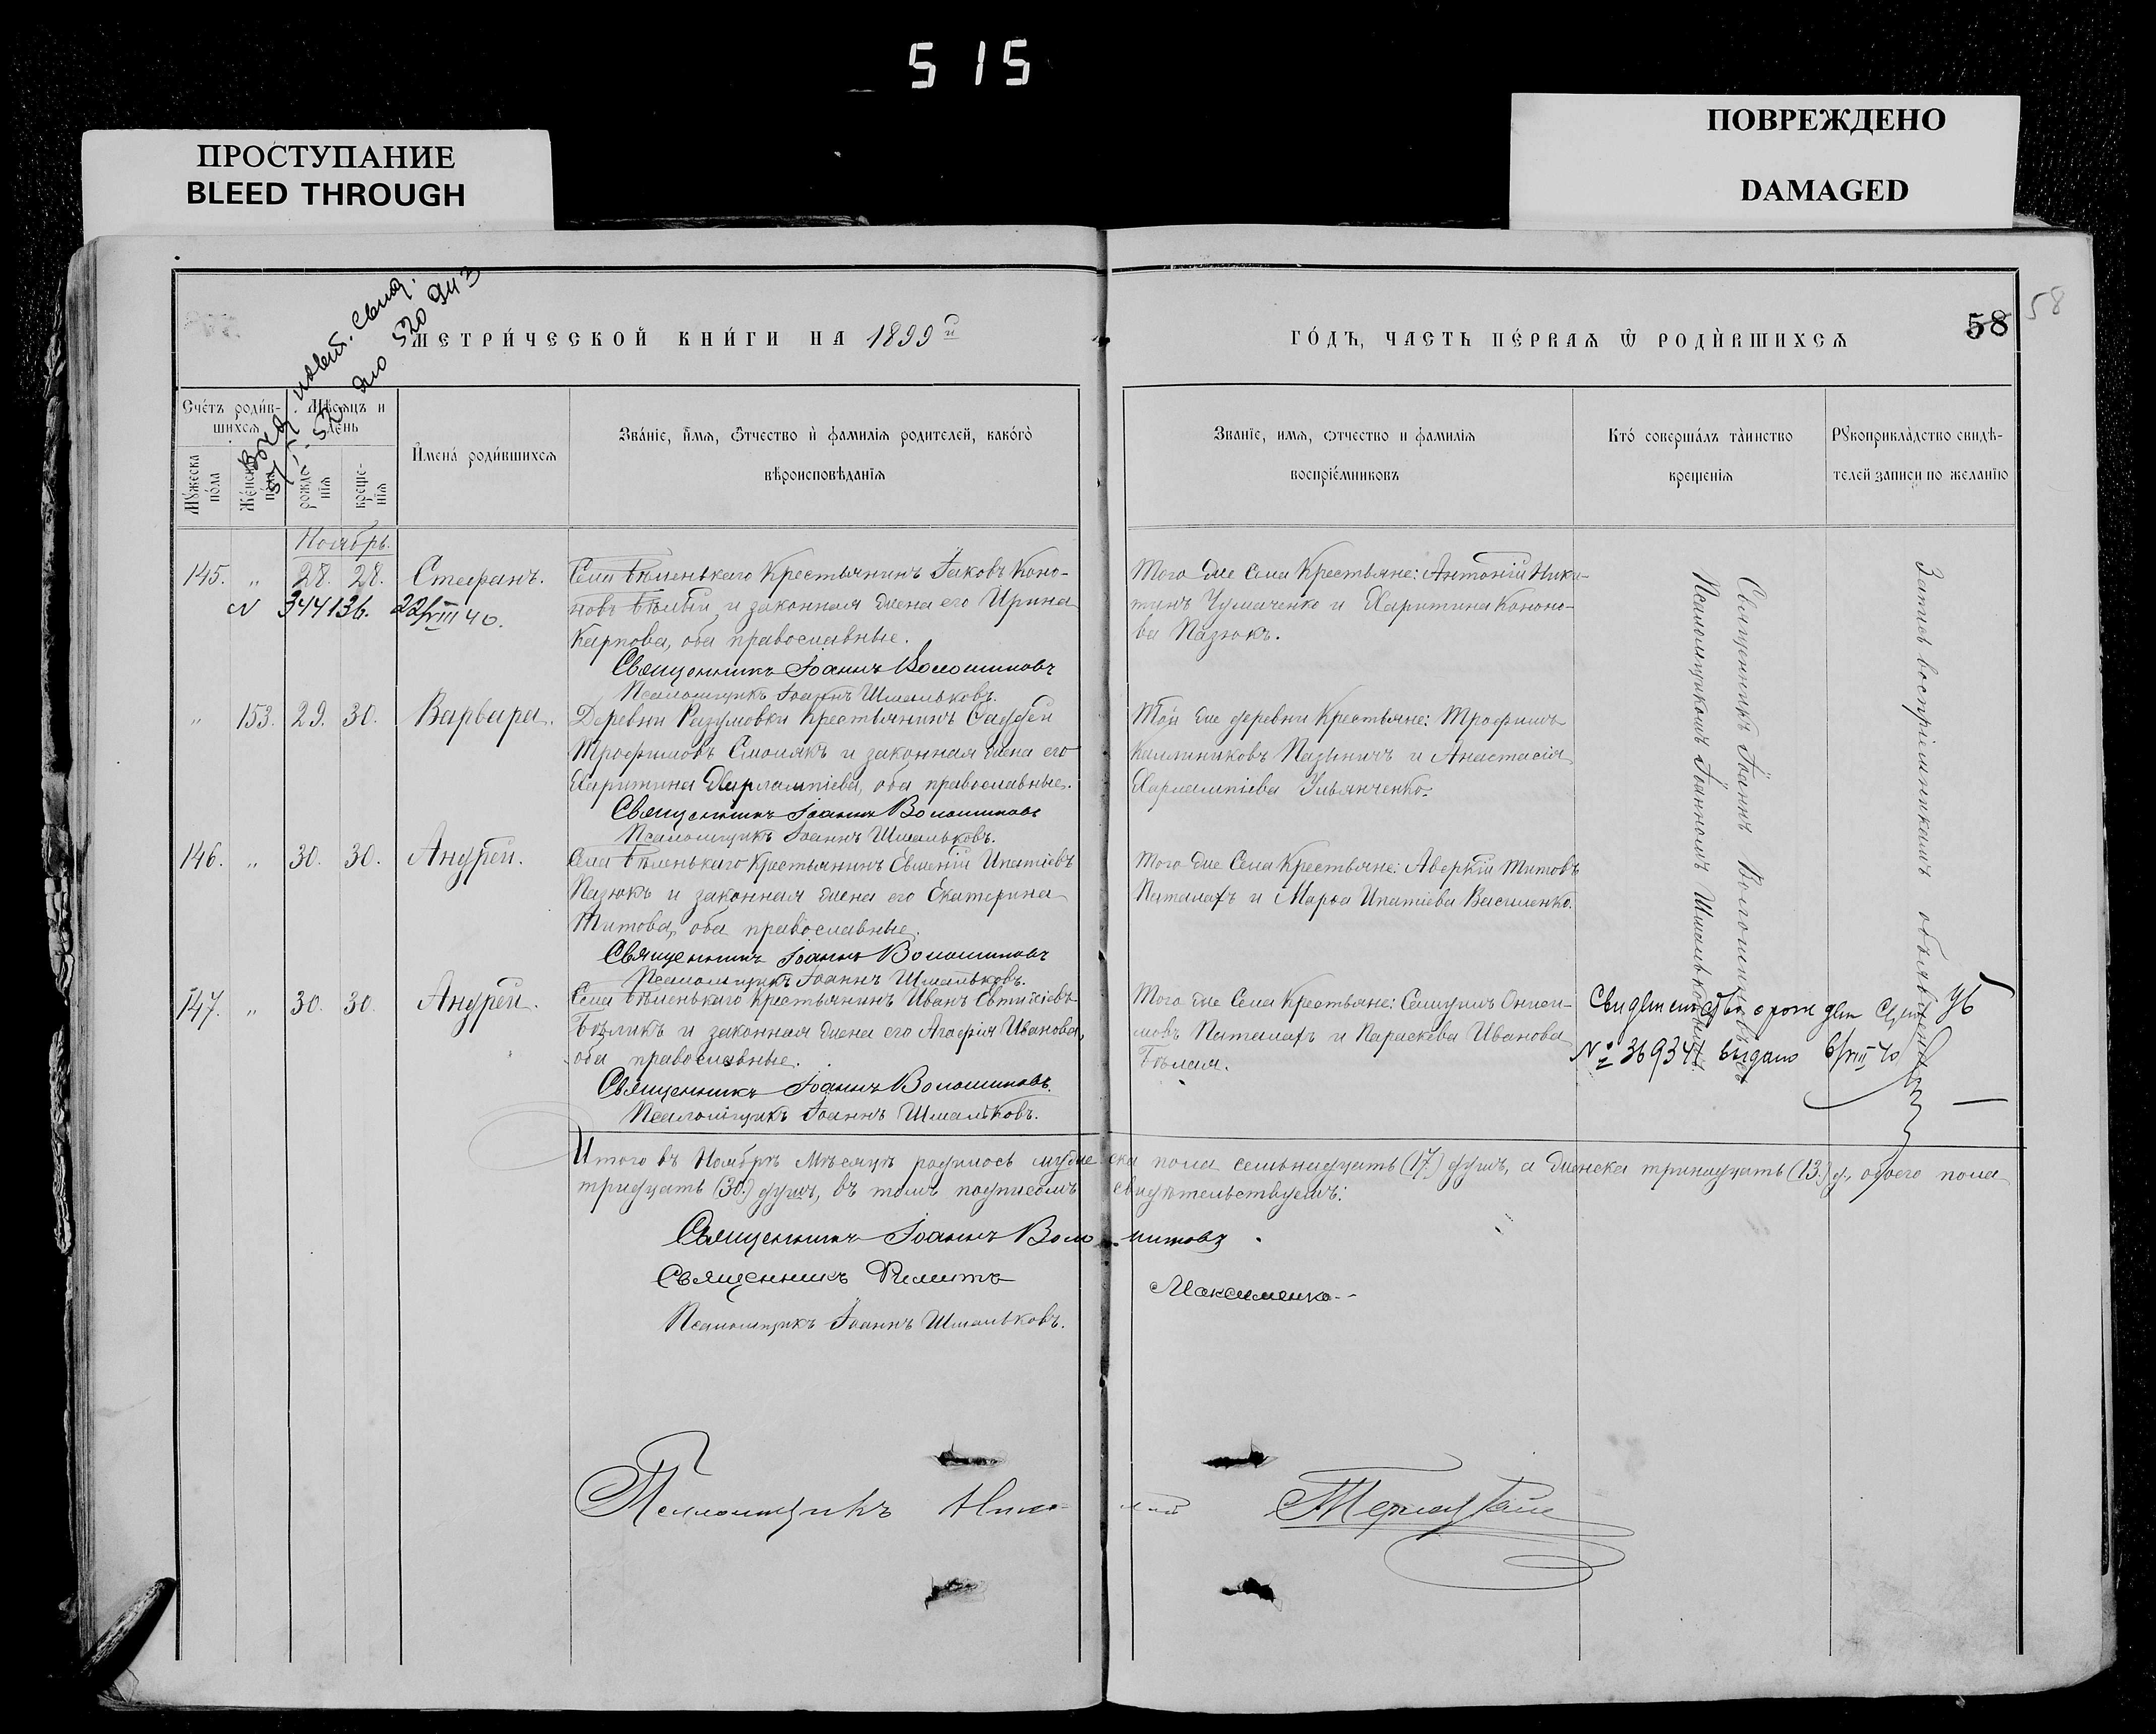 515
ПРОСТУПАНИЕ
BLEED THROUGH
ПОВРЕЖДЕНО
DAMAGED
МЕТРИ́ЧЕСКОЙ КНИ́ГИ НА 1899й
ГО́ДЪ, ЧАСТЬ ПЕ́РВАЯ Ѿ РОДИ́ВШИХСЯ
58
58
Счётъ роди́в-
шихся
Мѣсяцъ и
день
Мꙋ́жеска
по́ла
Же́нска
рожде-
нїя
креще-
нїя
И҆мена́ роди́вшихся
Зва́нїе, и҆́мя, ѻ҆́тчество и҆ фамилїя родителей, како́гѡ
вѣроисповѣданїя
Званїе, имя, ѻтчество и фамилїя
воспрїе́мниковъ
Кто́ соверша́лъ та́инство
крещенїя
Рꙋкоприкла́дство свидѣ-
телей записи по желанїю
Ноябрь.
145. " 28. 28. Стефанъ.
N 344136. 22/VIII 40.
Села Бѣленькаго Крестьянинъ Іаковъ Коно-
новъ и законная жена его Ирина
Карпова, оба православные.
Священникъ Іоаннъ Волошиновъ
Псаломщикъ Іоаннъ Шмальковъ.
Того же Села Крестьяне: Антоній Ники-
тинъ Чумаченко и Харитина Кононо-
ва Пазюкъ.
" 153. 29. 30. Варвара.
Деревни Разумовки Крестьянинъ Фаддей
Трофимовъ Смолякъ и законная жена его
Харитина Харлампіева, оба православные.
Священникъ Іоаннъ Волошиновъ
Псаломщикъ Іоаннъ Шмальковъ.
Той же деревни Крестьяне: Трофимъ
Каллиниковъ и Анастасія
Харлампіева Ульянченко.
146. " 30. 30. Андрей.
Села Бѣленькаго Крестьянинъ Евгеній Ипатіевъ
Пазюкъ и законная жена его Екатерина
Титова, оба православные.
Священникъ Іоаннъ Волошиновъ
Псаломщикъ Іоаннъ Шмальковъ.
Того же Села Крестьяне: Аверкій Титовъ
Паталахъ и Марѳа Ипатіева Василенко.
147. " 30. 30. Андрей.
Села Бѣленькаго Крестьянинъ Иванъ Евтихіевъ
Бѣликъ и законная жена его Агафія Иванова,
оба православные.
Священникъ Іоаннъ Волошиновъ.
Псаломщикъ Іоаннъ Шмальковъ.
Того же Села Крестьяне:
Паталахъ и Параскева Иванова
Бѣлая.
Священникъ Іоаннъ Волошиновъ съ
Псаломщикомъ Іоанномъ Шмальковымъ.
№ 369347 выдано 6/VIII 40
Итого въ Ноябрѣ Мѣсяцѣ родилось мужеска пола семьнадцать (17.) душъ, а женска тринадцать (13.) д., обоего пола
тридцать (30.) душъ, въ томъ подписомъ свидѣтельствуемъ:
Священникъ Іоаннъ Волошиновъ
Священникъ Филиппъ Максименко
Псаломщикъ Іоаннъ Шмальковъ.
Псаломщикъ